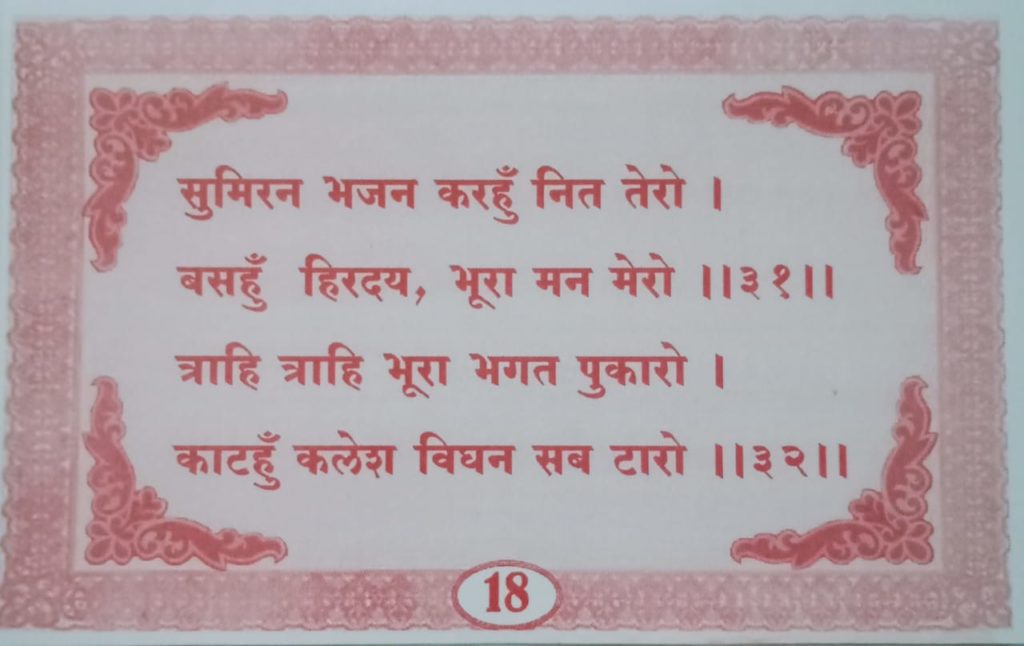 सुमिरन भजन करहुँ नित तेरो ।
बसहुँ हिरदय, भूरा मन मेरो ।।३१।।
त्राहि त्राहि भूरा भगत पुकारो ।
काटहुँ कलेश विघन सब टारो ।।३२।।
18